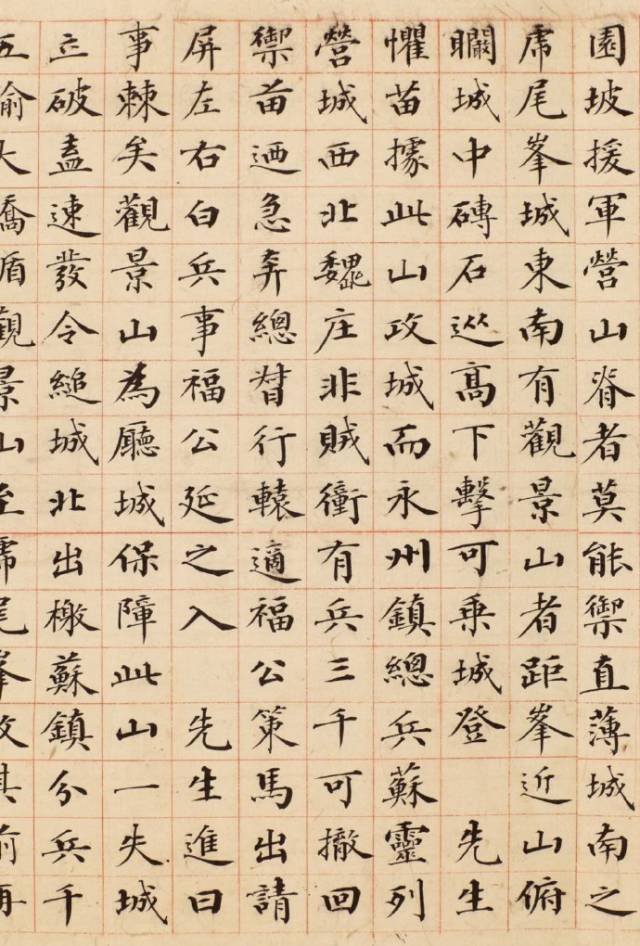 園坡援軍營山脊者莫能禦直薄城南之
虎尾峯城東南有觀景山者距峯近山俯
矙城中磚石巡高下擊可乘城登 先生
懼苗據此山攻城而永州鎮總兵蘇靈列
營城西北魏庄非賊衝有兵三千可撤回
禦苗迺急奔總督行轅適福公策馬出請
屏左右白兵事福公延之入 先生進曰
事棘矣觀景山為廳城保障此山一失城
立破盍速發令縋城北出檄蘇鎮分兵千
五 觀景山至虎尾峯攻其前再